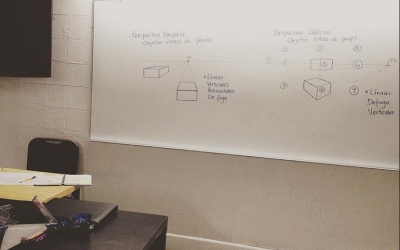 Perspectiva Paralela
Objetos vistos de frente
• Líneas
Verticales
Horizontales
De fuga
Perspectiva Oblicua
Objetos vistos de perfil
• Líneas
De fuga
Verticales